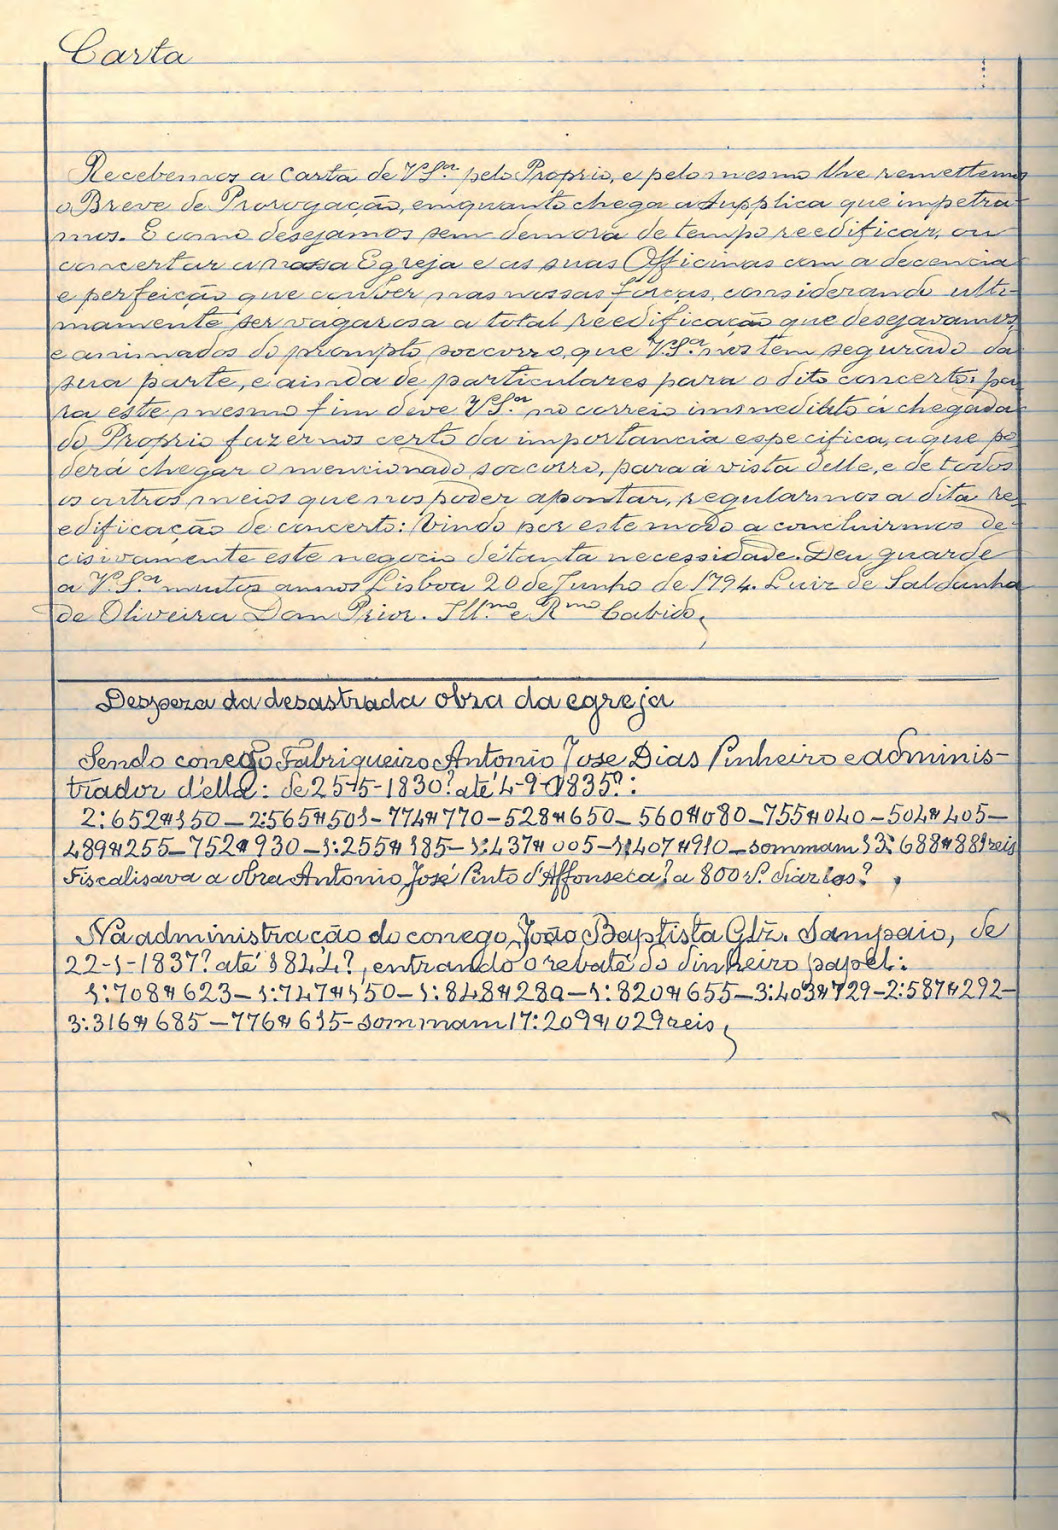 Carta
Recebemos a Carta de V.S.ª pelo Proprio, e pelo mesmo lhe remettemos
o Breve de Prorogação, emquanto chega a Supplica que impetra-
mos. E como desejamos sem demora de tempo reedificar, ou
concertar a nossa Egreja e as suas Officinas com a decencia
e perfeição que couber nas nossas forças, considerando ulti-
mamente ser vagarosa a total reedificação que desejavamos,
e animados do prompto soccorro, que V.S.ª nos tem segurado da
sua parte, e ainda de particulares para o dito concerto: pa-
ra este mesmo fim deve V.S.ª no correio immediato á chegada
do Proprio fazernos certo da importancia especifica, a que po-
derá chegar o mencionado soccorro, para á vista delle, e de todos
os outros meios que nos poder apontar, regularmos a dita re-
edificação de concerto: Vindo por este modo a concluirmos de-
cisivamente este negocio de tanta necessidade. Deu guarde
a V.S.ª muitos annos Lisboa 20 de Junho de 1794. Luiz de Saldanha
de Oliveira Dom Prior. Ill.mo e R.mo Cabido,
Despeza da desastrada obra da egreja
Sendo conego Fabriqueiro Antonio Jose Dias Pinheiro e adminis-
trador d'ella: de 25-5-1830? até 4-9-1835?:
2:652$150 — 2:565$501 - 774$770 - 528$650 — 560$080 — 755$040 - 504$405 -
489$255 — 752$930 — 1:255$185 — 1:437$005 — 1:407$910 — sommam 13:688$881 reis
Fiscalisava a obra Antonio José Pinto d'Affonseca? a 800 r.s diarios?
Na administração do conego João Baptista Glz. Sampaio, de
22-1-1837? até 1844?, entrando o rebate do dinheiro papel:
1:708$623 — 1:747$150 — 1:848$280 — 1:820$655 — 3:403$729 — 2:587$292 —
3:316$685 — 776$615 - sommam 17:209$029 reis,